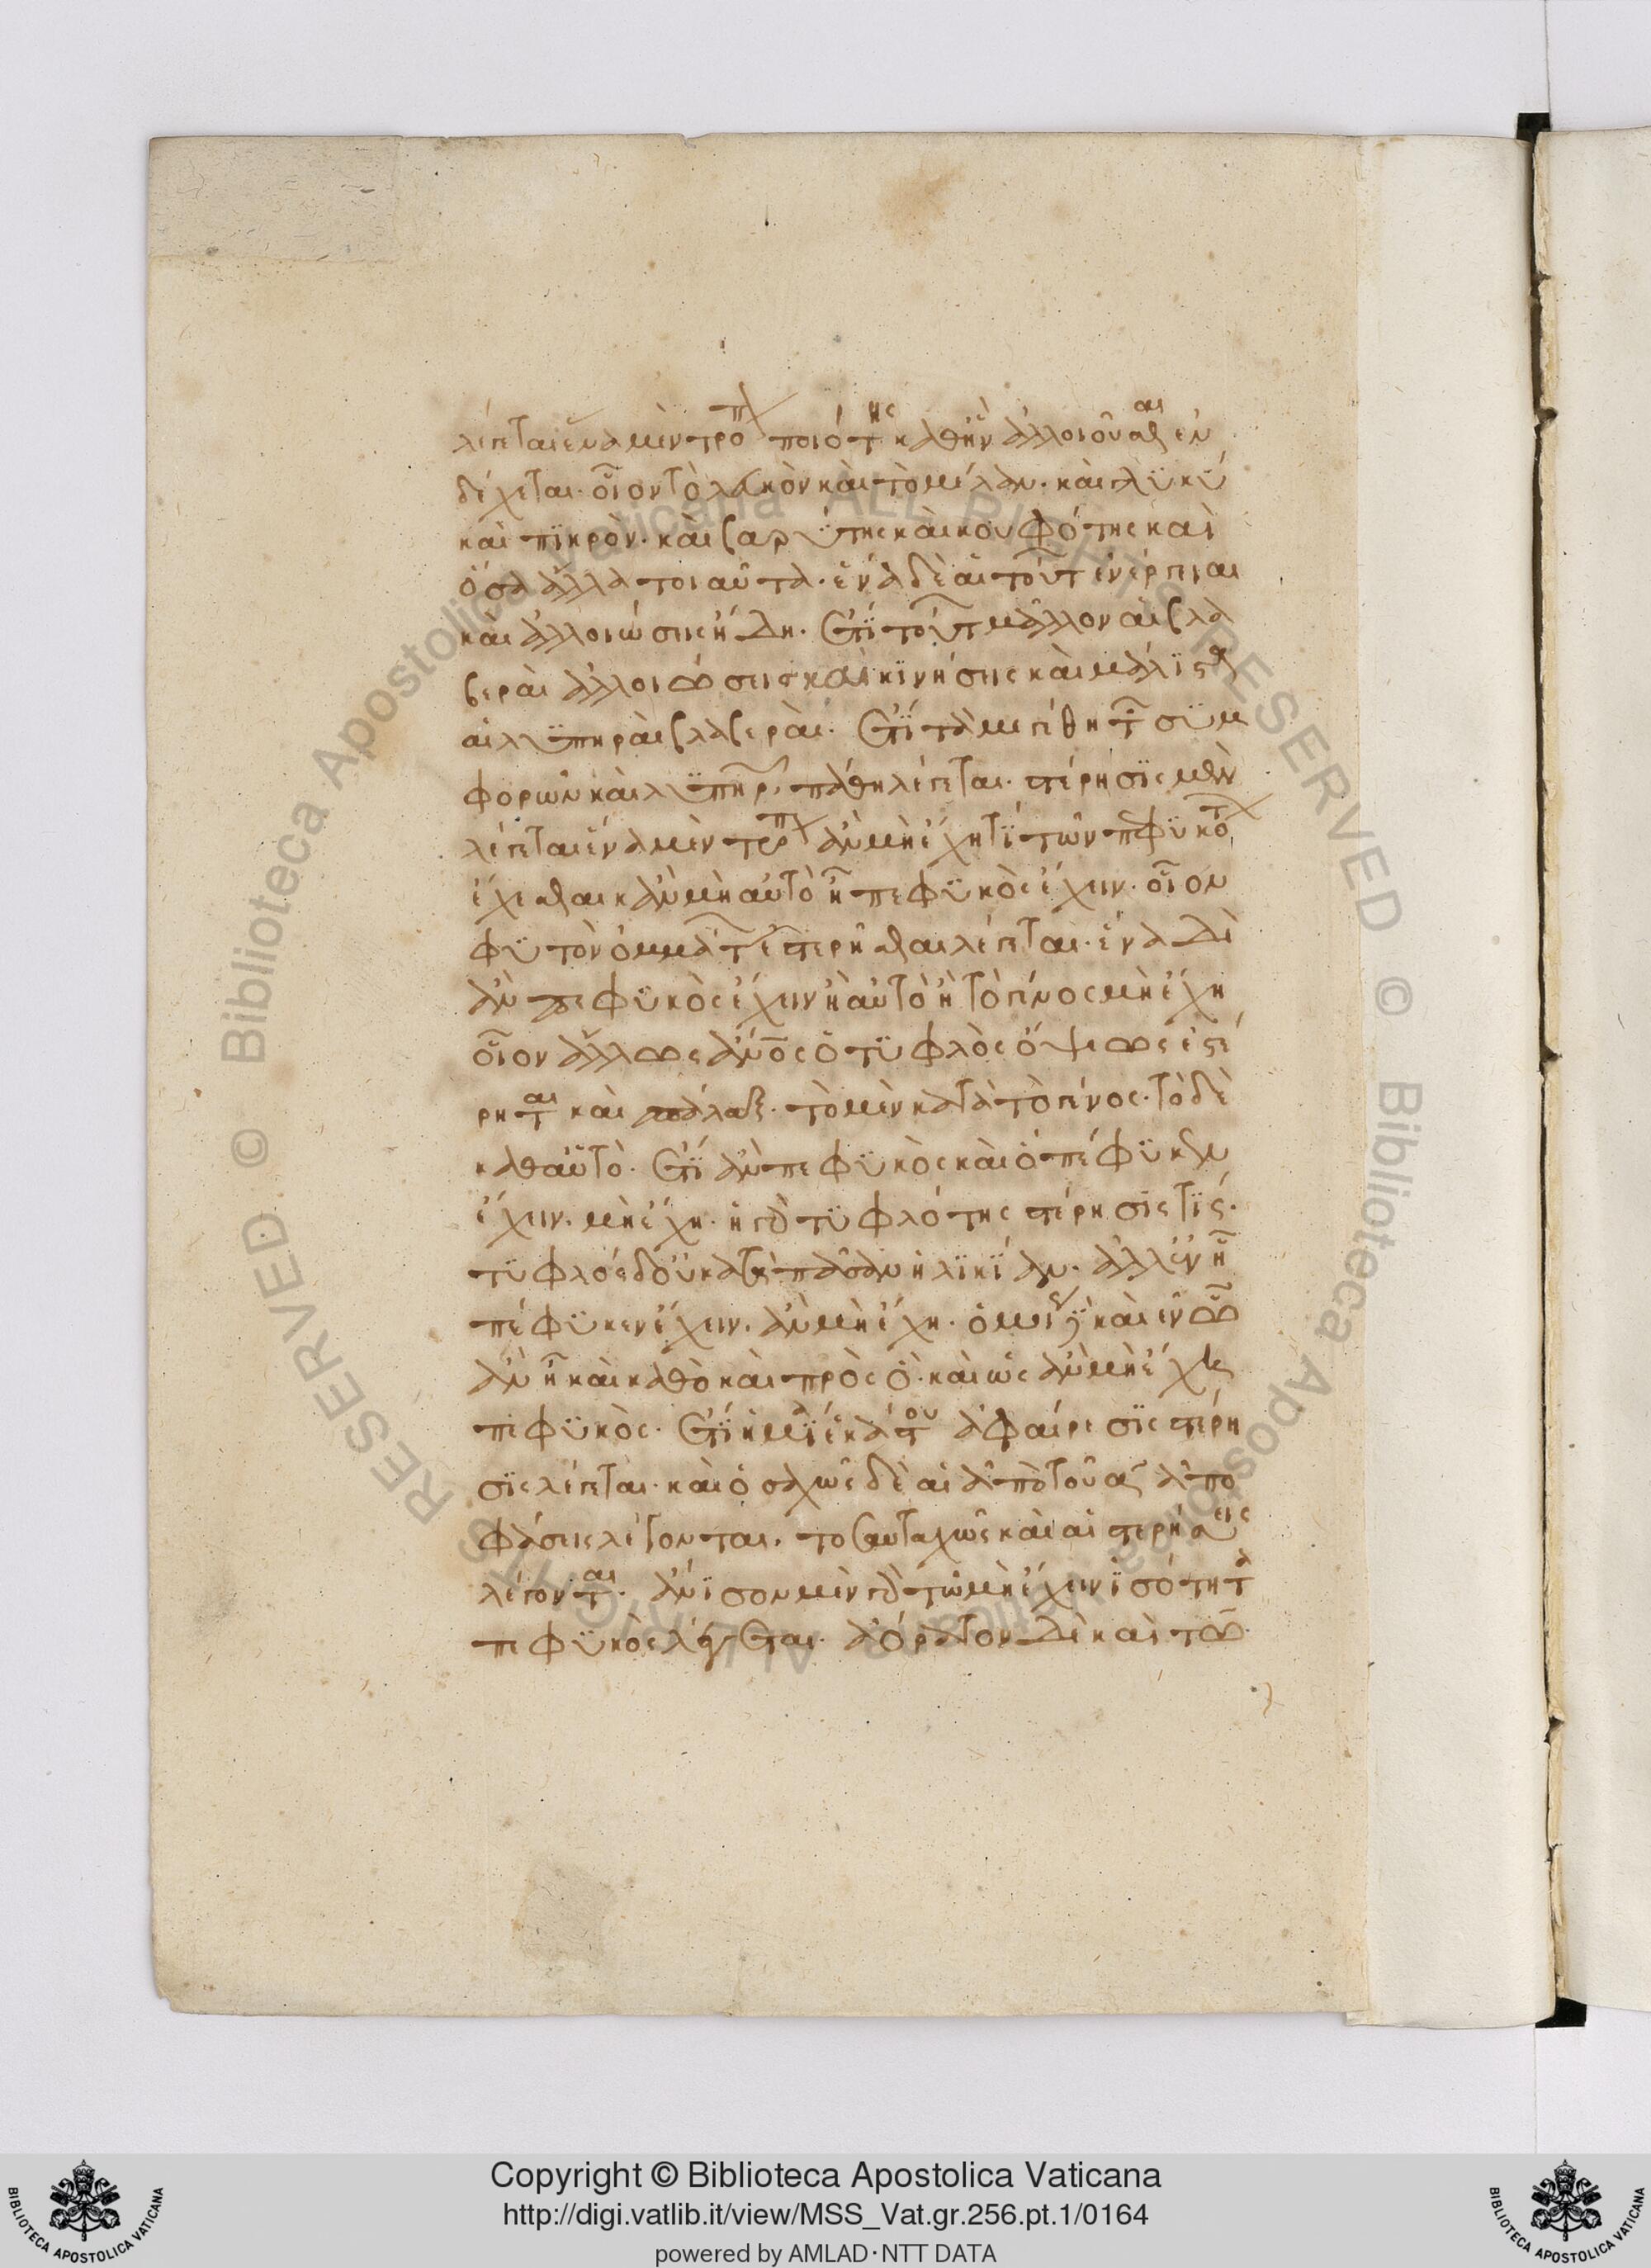 λέγεται ἕνα μὲν τρόπ ποιότης καθ ἣν ἀλλοιοῦσθαι ἐν
δέχεται· οἷον τὸ λευκὸν καὶ τὸ μέλαν· καὶ γλϋκΰ
καὶ πϊκρὸν· καὶ βαρΰτης καὶ κουφότης καὶ
ὅσα ἄλλα τοιαῦτα· ἕνα δὲ αἱ τούτ ἐνέργειαι
καὶ ἀλλοιώσεις ἤδη· ἔτϊ τούτ μᾶλλον αἱ βλα
βεραὶ ἀλλοιώσεις καὶ κϊνήσεις καὶ μάλϊστα
αἱ λϋπηραὶ βλαβεραὶ· ἔτϊ τὰ μεγέθη τ σϋμ
φορῶν καὶ λϋπηρ πάθη λέγεται· στέρησϊς μὲν
λέγεται ἕνα μὲν τρόπ ἂν μὴ ἔχη τϊ τῶν πεφϋκότ
ἔχεσθαι κἂν μὴ αὐτὸ ἦ πεφϋκὸς ἔχειν· οἷον
φϋτὸν ὀμμάτ ἐστερῆσθαι λέγεται· ἕνα δὲ
ἂν πεφϋκὸς ἔχειν ἢ αὐτὸ ἢ τὸ γένος μὴ ἔχη
οἷον ἄλλως ἄνος ὁ τϋφλὸς ὄψεως ἐστέ
ρηται καὶ ἀσπάλαξ· τὸ μὲν κατὰ τὸ γένος· τὸ δὲ
καθ αὑτὸ· ἔτϊ ἂν πεφϋκὸς καὶ ὅ πέφϋκεν
ἔχειν· μὴ ἔχη· ἡ γὰρ τϋφλότης στέρησϊς τϊς·
τϋφλὸς δ οὐ κατὰ πᾶσαν ἡλϊκΐαν· ἀλλ ἐν ἧ
πέφϋκεν ἔχειν· ἂν μὴ ἔχη· ὁμοίως δὲ καὶ ἐν ὧ
ἂν ἦ καὶ καθὸ καὶ πρὸς ὃ· καὶ ὡς ἂν μὴ ἔχη
πεφϋκὸς· ἔτϊ ἡ βϊαία ἑκάστου ἀφαίρεσϊς στέρη
σϊς λέγεται· καὶ ὁσαχῶς δὲ αἱ ἀπὸ τοῦ α ἀπο
φάσεις λέγονται· τοσαυταχῶς καὶ αἱ στερήσεις
λέγονται· ἄνϊσον μὲν γὰρ τῶ μὴ ἔχειν ϊσότητα
πεφϋκὸς λέγεται· ἀόρατον δὲ καὶ τῶ
Copyright © Biblioteca Apostolica Vaticana
http://digi.vatlib.it/view/MSS_Vat.gr.256.pt.1/0164
powered by AMLAD · NTT DATA